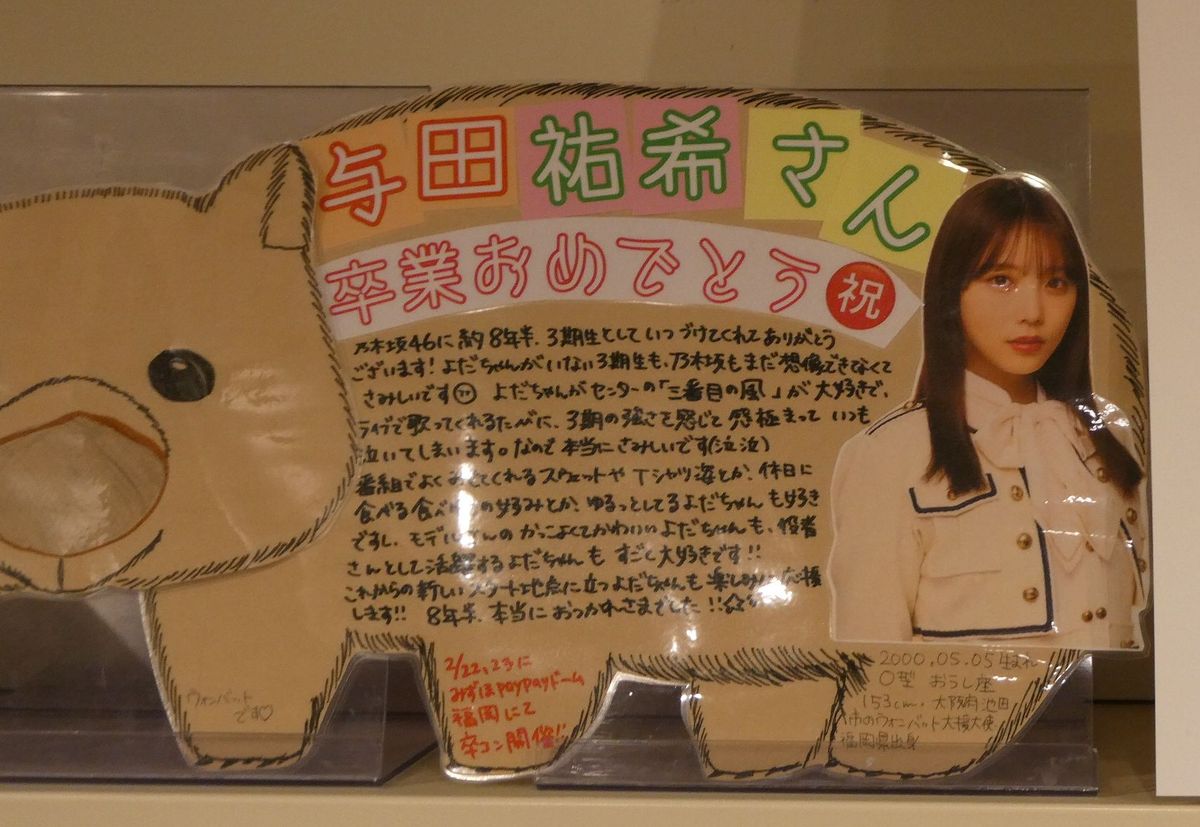 与田祐希さん
卒業おめでとう 祝
乃木坂46に約8年半、3期生としていつづけてくれてありがとう
ございます！よだちゃんがいない3期生も、乃木坂もまだ想像できなくて
さみしいです よだちゃんがセンターの「三番目の風」が大好きで、
ライブで歌ってくれるたびに、3期の強さを感じと感極まっていつも
泣いてしまいます。なので本当にさみしいです(泣泣)
番組でよくみせてくれるスウェットやTシャツ姿とか、休日に
食べる食べものの好みとか、ゆるっとしてるよだちゃんも好き
ですし、モデルさんのかっこよくてかわいいよだちゃんも、役者
さんとして活躍するよだちゃんもすごく大好きです!!
これからの新しいスタート地点に立つよだちゃんも楽しみに応援
します!! 8年半、本当におつかれさまでした!!
ウォンバット
です♡
2/22、23に
みずほPayPayドーム
福岡にて
卒コン開催!!
2000.05.05生まれ
O型 おうし座
153cm・大阪府池田
市のウォンバット大援大使
福岡県出身